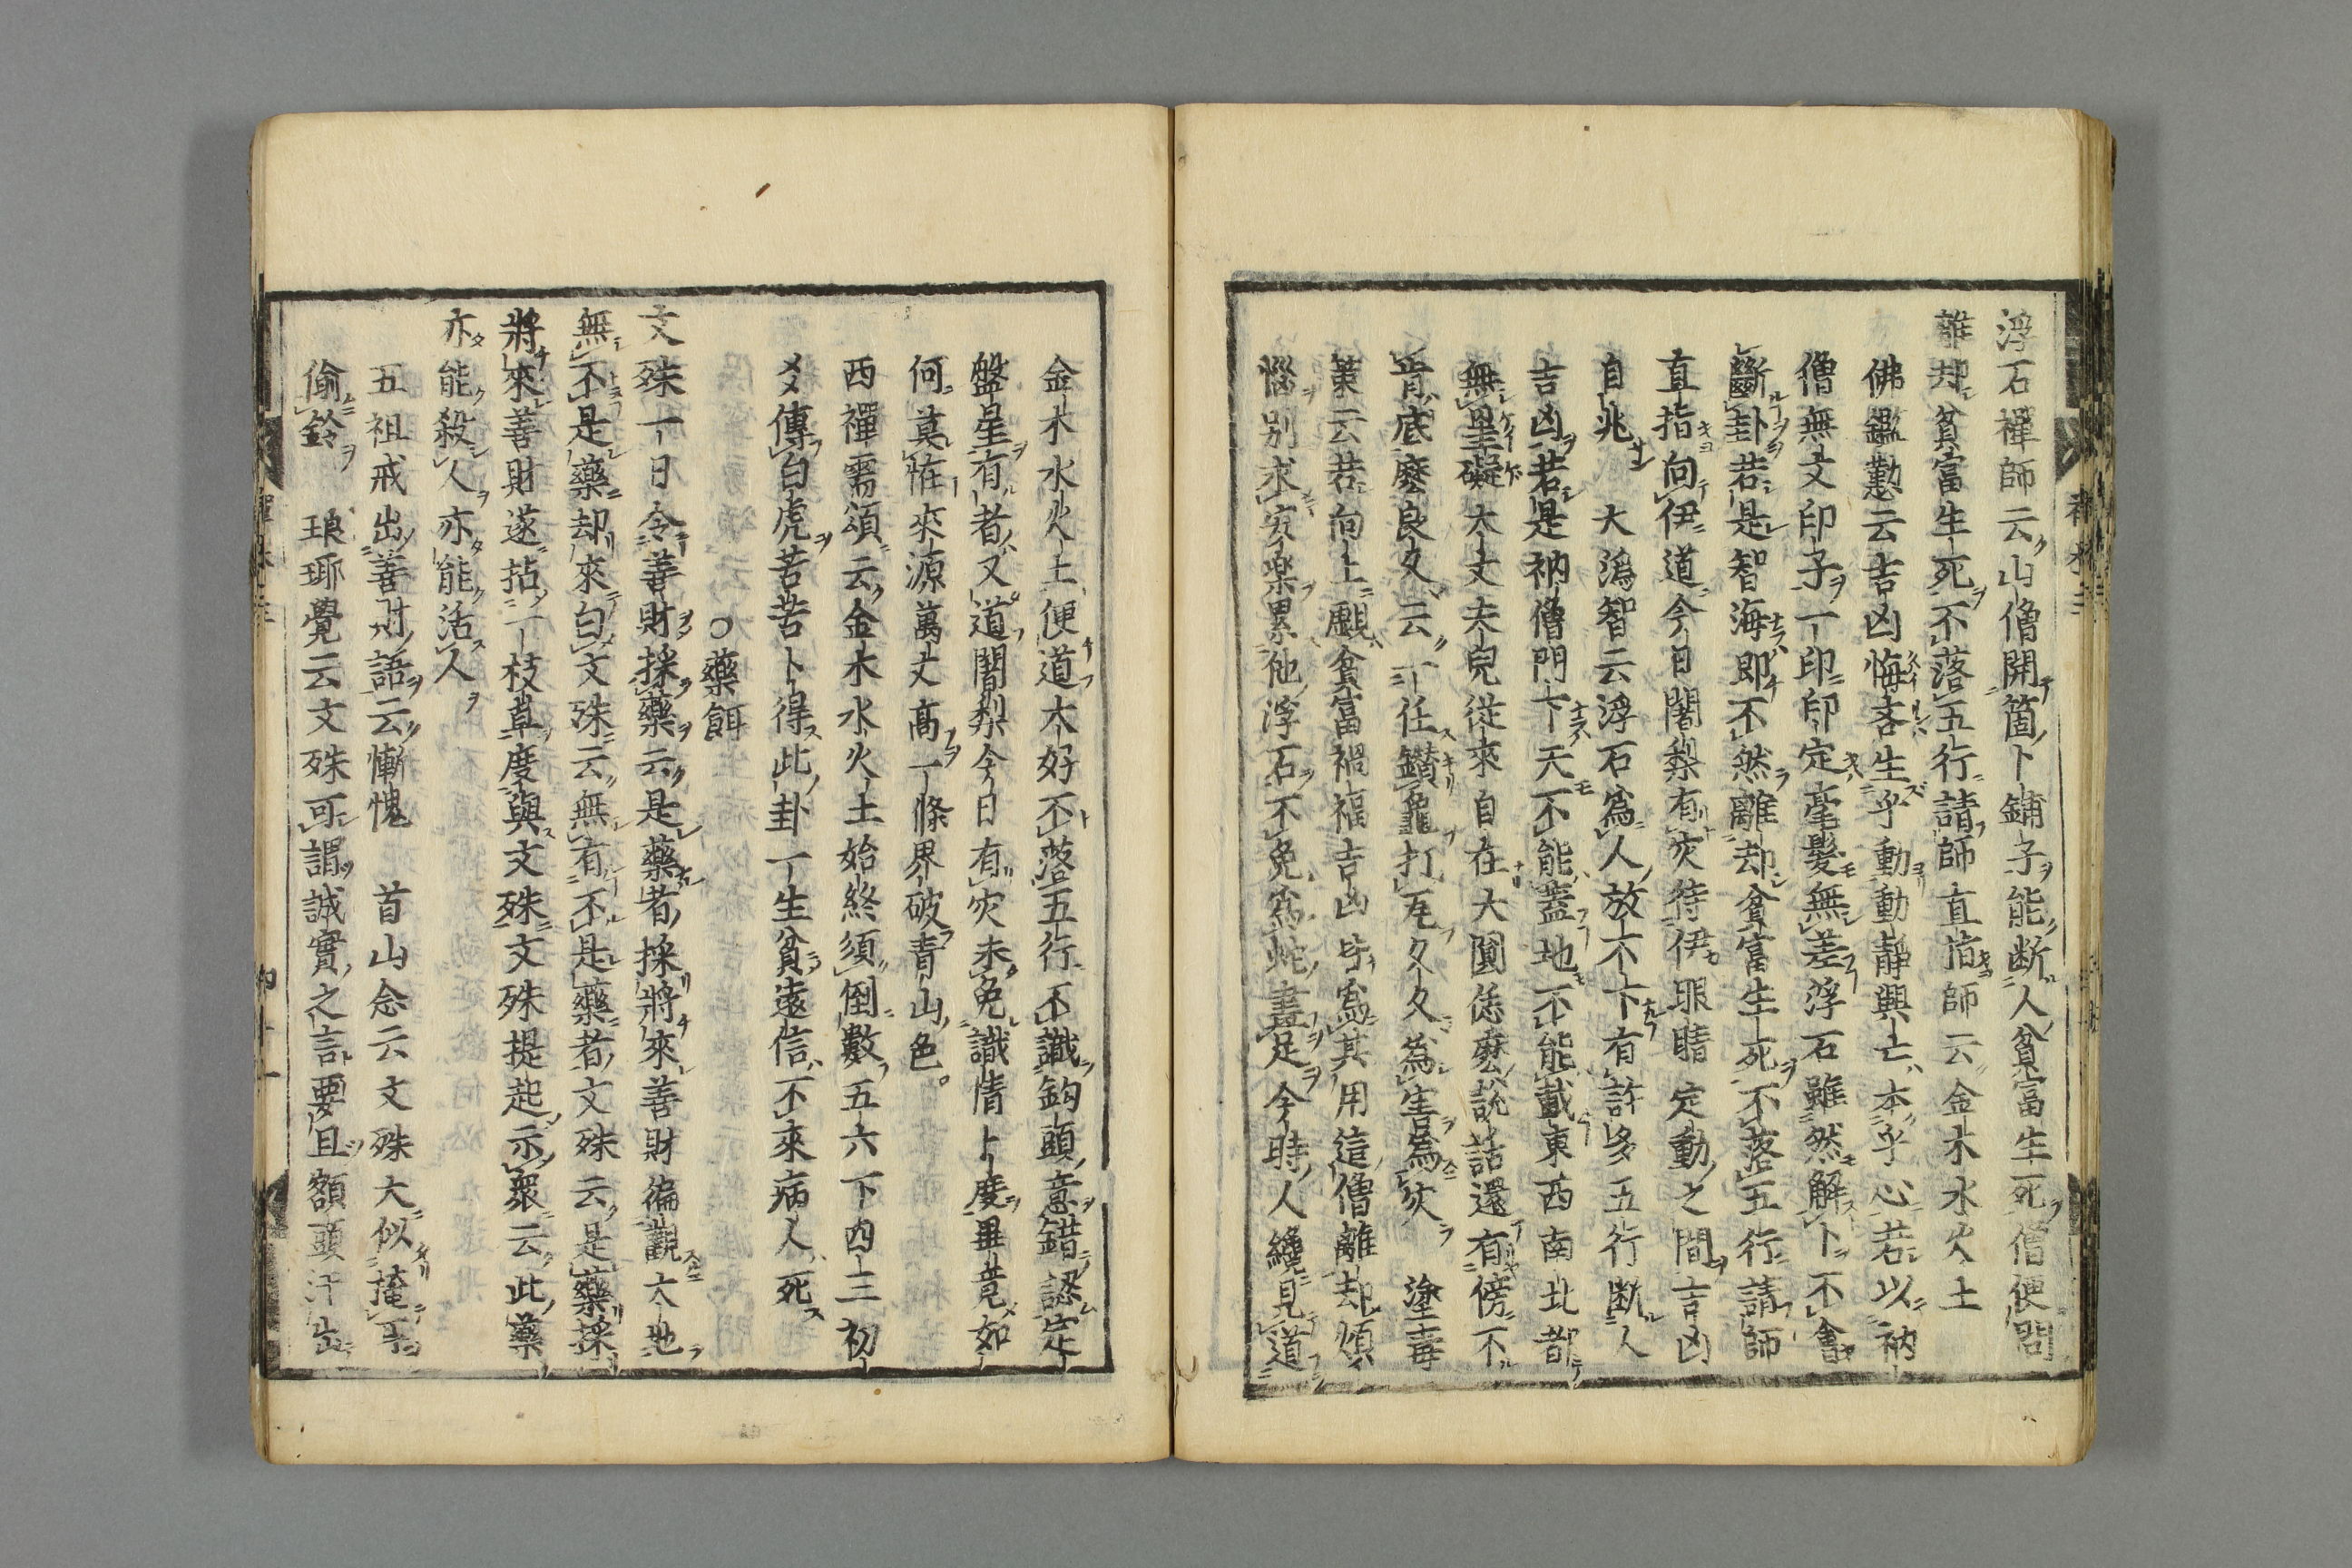 浮石禪師云山僧開箇卜鋪子能断人貧富生死僧便問
離却貧富生死不落五行請師直指師云金木水火土
佛鑑懃云吉凶悔吝生乎動動靜興亡本乎心若以衲
僧無文印子一印印定毫髮無差浮石雖然解卜不會
斷卦若是智海即不然離却貧富生死不落五行請師
直指向伊道今日闍梨有灾待伊眼睛定動之間吉凶
自兆　大溈智云浮石為人放不下有許多五行断人
吉凶若是衲僧門下天不能蓋地不能載東西南北都
無罣礙大丈夫兒從來自在大圓恁麽說話還有傍不
肯底麽良久云一任鑽龜打瓦久久為害為灾　塗毒
策云若向上覷貧富禍福吉凶皆為其用這僧離却煩
惱別求安楽累他浮石不免為蛇畫足今時人纔見道
金木水火土便道大好不落五行不識鈎頭意錯認定
盤星有者又道闍梨今日有灾未免識情卜度畢竟如
何莫恠來源萬丈高一條界破青山色
西禪需頌云金木水火土始終須倒數五六下四三初
爻傳白虎苦苦卜得此卦一生貧遠信不來病人死
○藥餌
文殊一日令善財採藥云是藥者採將來善財徧觀大地
無不是藥却來白文殊云無有不是藥者文殊云是藥採
將來善財遂拈一枝草度與文殊文殊提起示衆云此藥
亦能殺人亦能活人
五祖戒出善財語云慚愧　首山念云文殊大似掩耳
偷鈴　琅琊覺云文殊可謂誠實之言要且額頭汗出